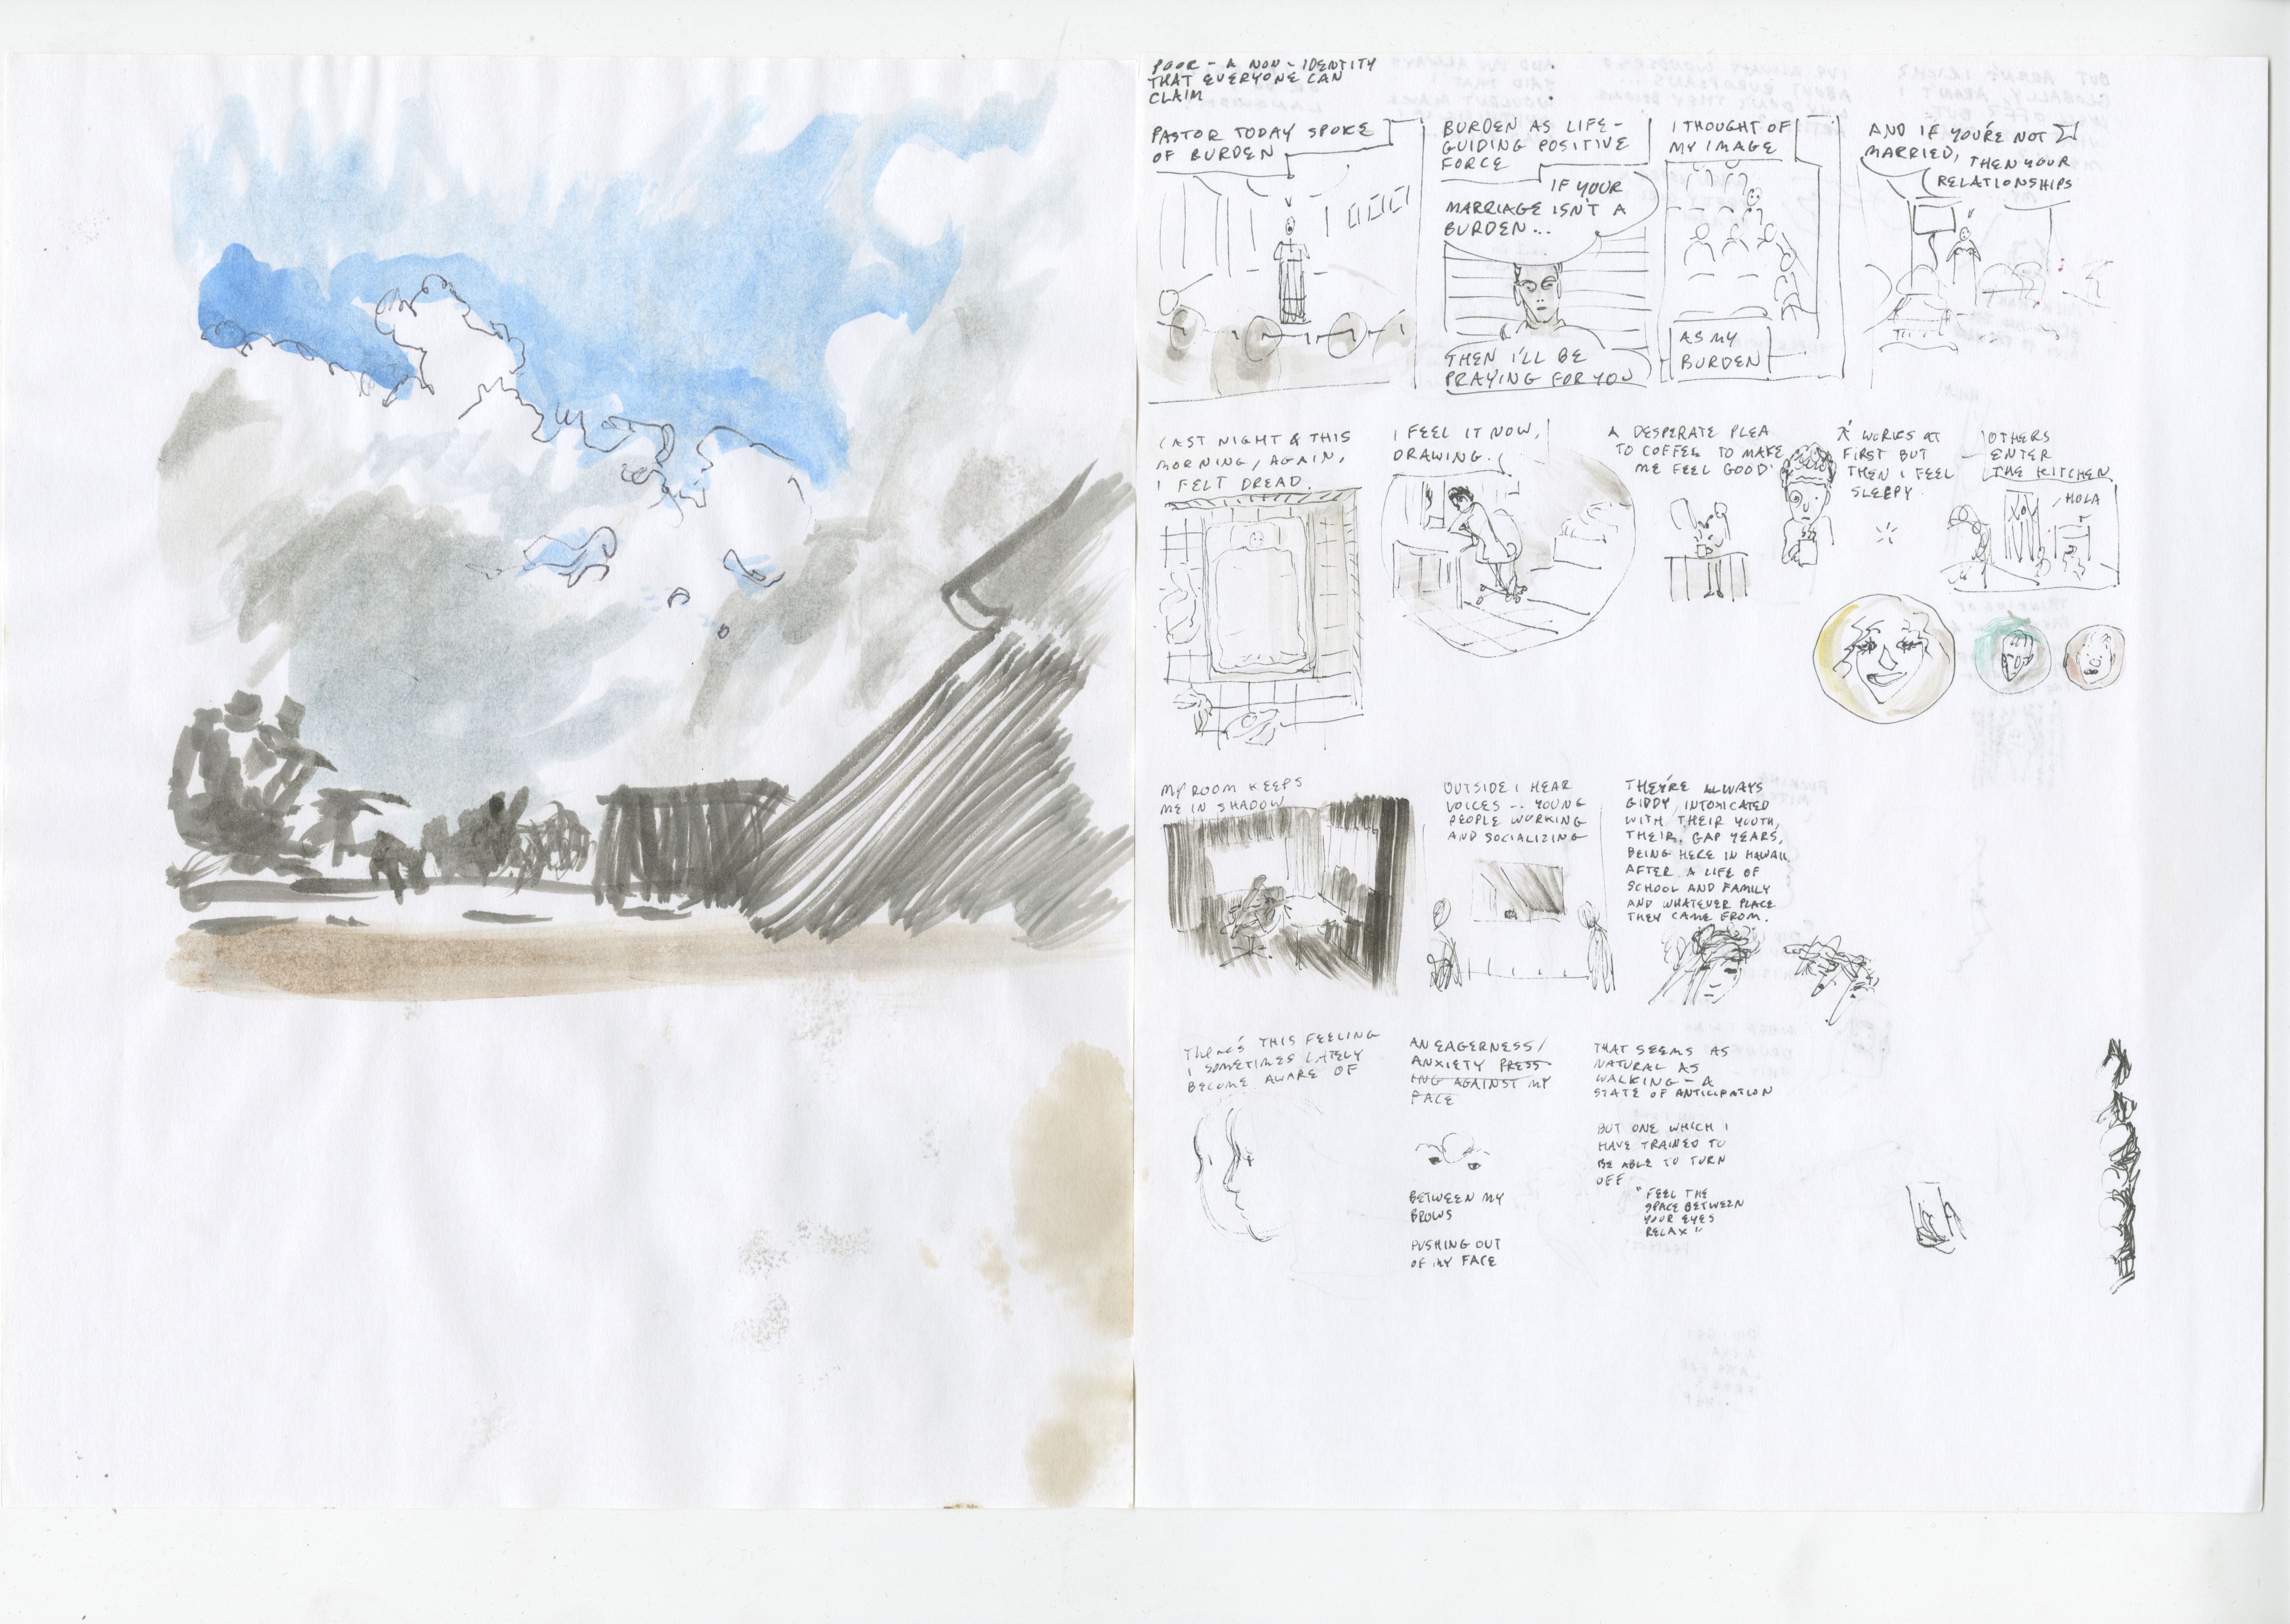 POOR - A NON-IDENTITY
THAT EVERYONE CAN
CLAIM
PASTOR TODAY SPOKE
OF BURDEN
BURDEN AS LIFE-
GUIDING POSITIVE
FORCE
IF YOUR
MARRIAGE ISN'T A
BURDEN...
THEN I'LL BE
PRAYING FOR YOU
I THOUGHT OF
MY IMAGE
AS MY
BURDEN
AND IF YOU'RE NOT
MARRIED, THEN YOUR
RELATIONSHIPS
LAST NIGHT & THIS
MORNING, AGAIN,
I FELT DREAD.
I FEEL IT NOW,
DRAWING.
A DESPERATE PLEA
TO COFFEE TO MAKE
ME FEEL GOOD.
IT WORKS AT
FIRST BUT
THEN I FEEL
SLEEPY.
OTHERS
ENTER
THE KITCHEN
HOLA
MY ROOM KEEPS
ME IN SHADOW
OUTSIDE I HEAR
VOICES -- YOUNG
PEOPLE WORKING
AND SOCIALIZING
THEY'RE ALWAYS
GIDDY, INTOXICATED
WITH THEIR YOUTH,
THEIR GAP YEARS,
BEING HERE IN HAWAII
AFTER A LIFE OF
SCHOOL AND FAMILY
AND WHATEVER PLACE
THEY CAME FROM.
THERE'S THIS FEELING
I SOMETIMES LATELY
BECOME AWARE OF
AN EAGERNESS/
ANXIETY PRESS
ING AGAINST MY
FACE
BETWEEN MY
BROWS
PUSHING OUT
OF MY FACE
THAT SEEMS AS
NATURAL AS
WALKING - A
STATE OF ANTICIPATION
BUT ONE WHICH I
HAVE TRAINED TO
BE ABLE TO TURN
OFF
"FEEL THE
SPACE BETWEEN
YOUR EYES
RELAX"